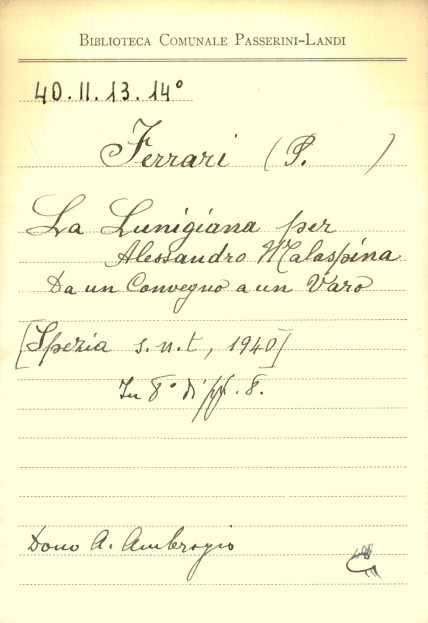 BIBLIOTECA COMUNALE PASSERINI-LANDI
40.II.13.14°
Ferrari (P. )
La Lunigiana per
Alessandro Malaspina
Da un Convegno a un Varo
[Spezia s.n.t, 1940]
In 8° di pp. 8.
Dono A. Ambrogio